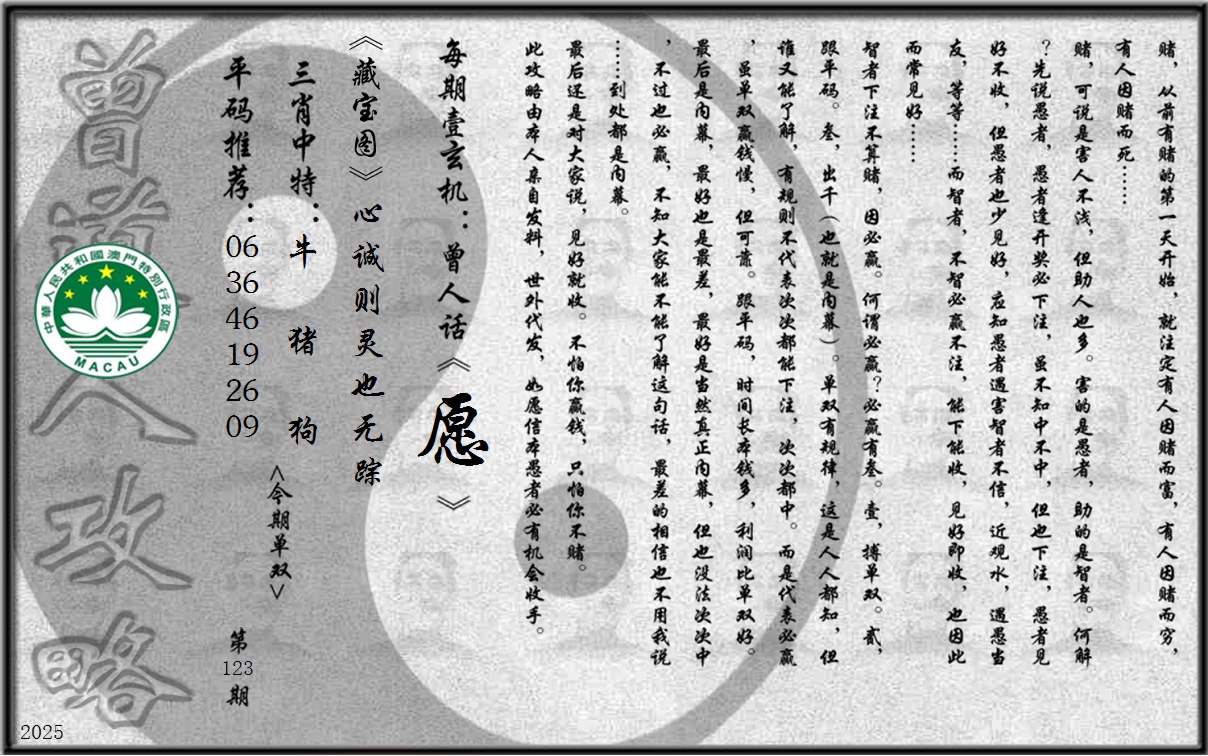 赌，从前有赌的第一天开始，就注定有人因赌而富，有人因赌而穷，
有人因赌而死……
赌，可说是害人不浅，但助人也多。害的是愚者，助的是智者。何解
？先说愚者，愚者逢开奖必下注，虽不知中不中，但也下注，愚者见
好不收，但愚者也少见好，应知愚者遇害智者不信，近观水，遇愚当
友，等等……而智者，不智必赢不注，能下能收，见好即收，也因此
而常见好……
智者下注不算赌，因必赢。何谓必赢？必赢有叁。壹，搏单双。贰，
跟平码。叁，出千（也就是内幕）。单双有规律，这是人人都知，但
谁又能了解，有规则不代表次次都能下注，次次都中。而是代表必赢
，虽单双赢钱慢，但可靠。跟平码，时间长本钱多，利润比单双好。
最后是内幕，最好也是最差，最好是当然真正内幕，但也没法次次中
，不过也必赢，不知大家能不能了解这句话，最差的相信也不用我说
……到处都是内幕。
最后还是对大家说，见好就收。不怕你赢钱，只怕你不赌。
此攻略由本人亲自发料，世外代发，如愿信本愚者必有机会收手。
每期壹玄机：曾人话《愿》
《藏宝图》心诚则灵也无踪
三肖中特：牛 猪 狗
<今期单双>
平码推荐：06 36 46 19 26 09
第123期
曾道人攻略
中華人民共和國澳門特別行政區
MACAU
2025